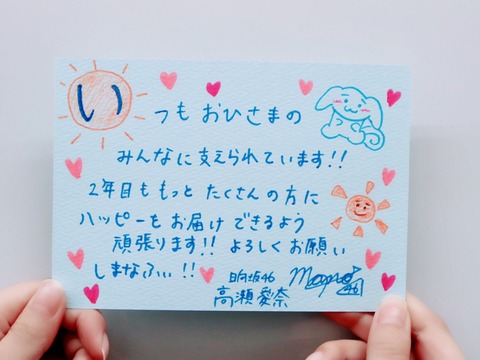 いつもおひさまの
みんなに支えられています!!
2年目ももっとたくさんの方に
ハッピーをお届けできるよう
頑張ります!! よろしくお願い
しまなふぃ!!
日向坂46
高瀬愛奈